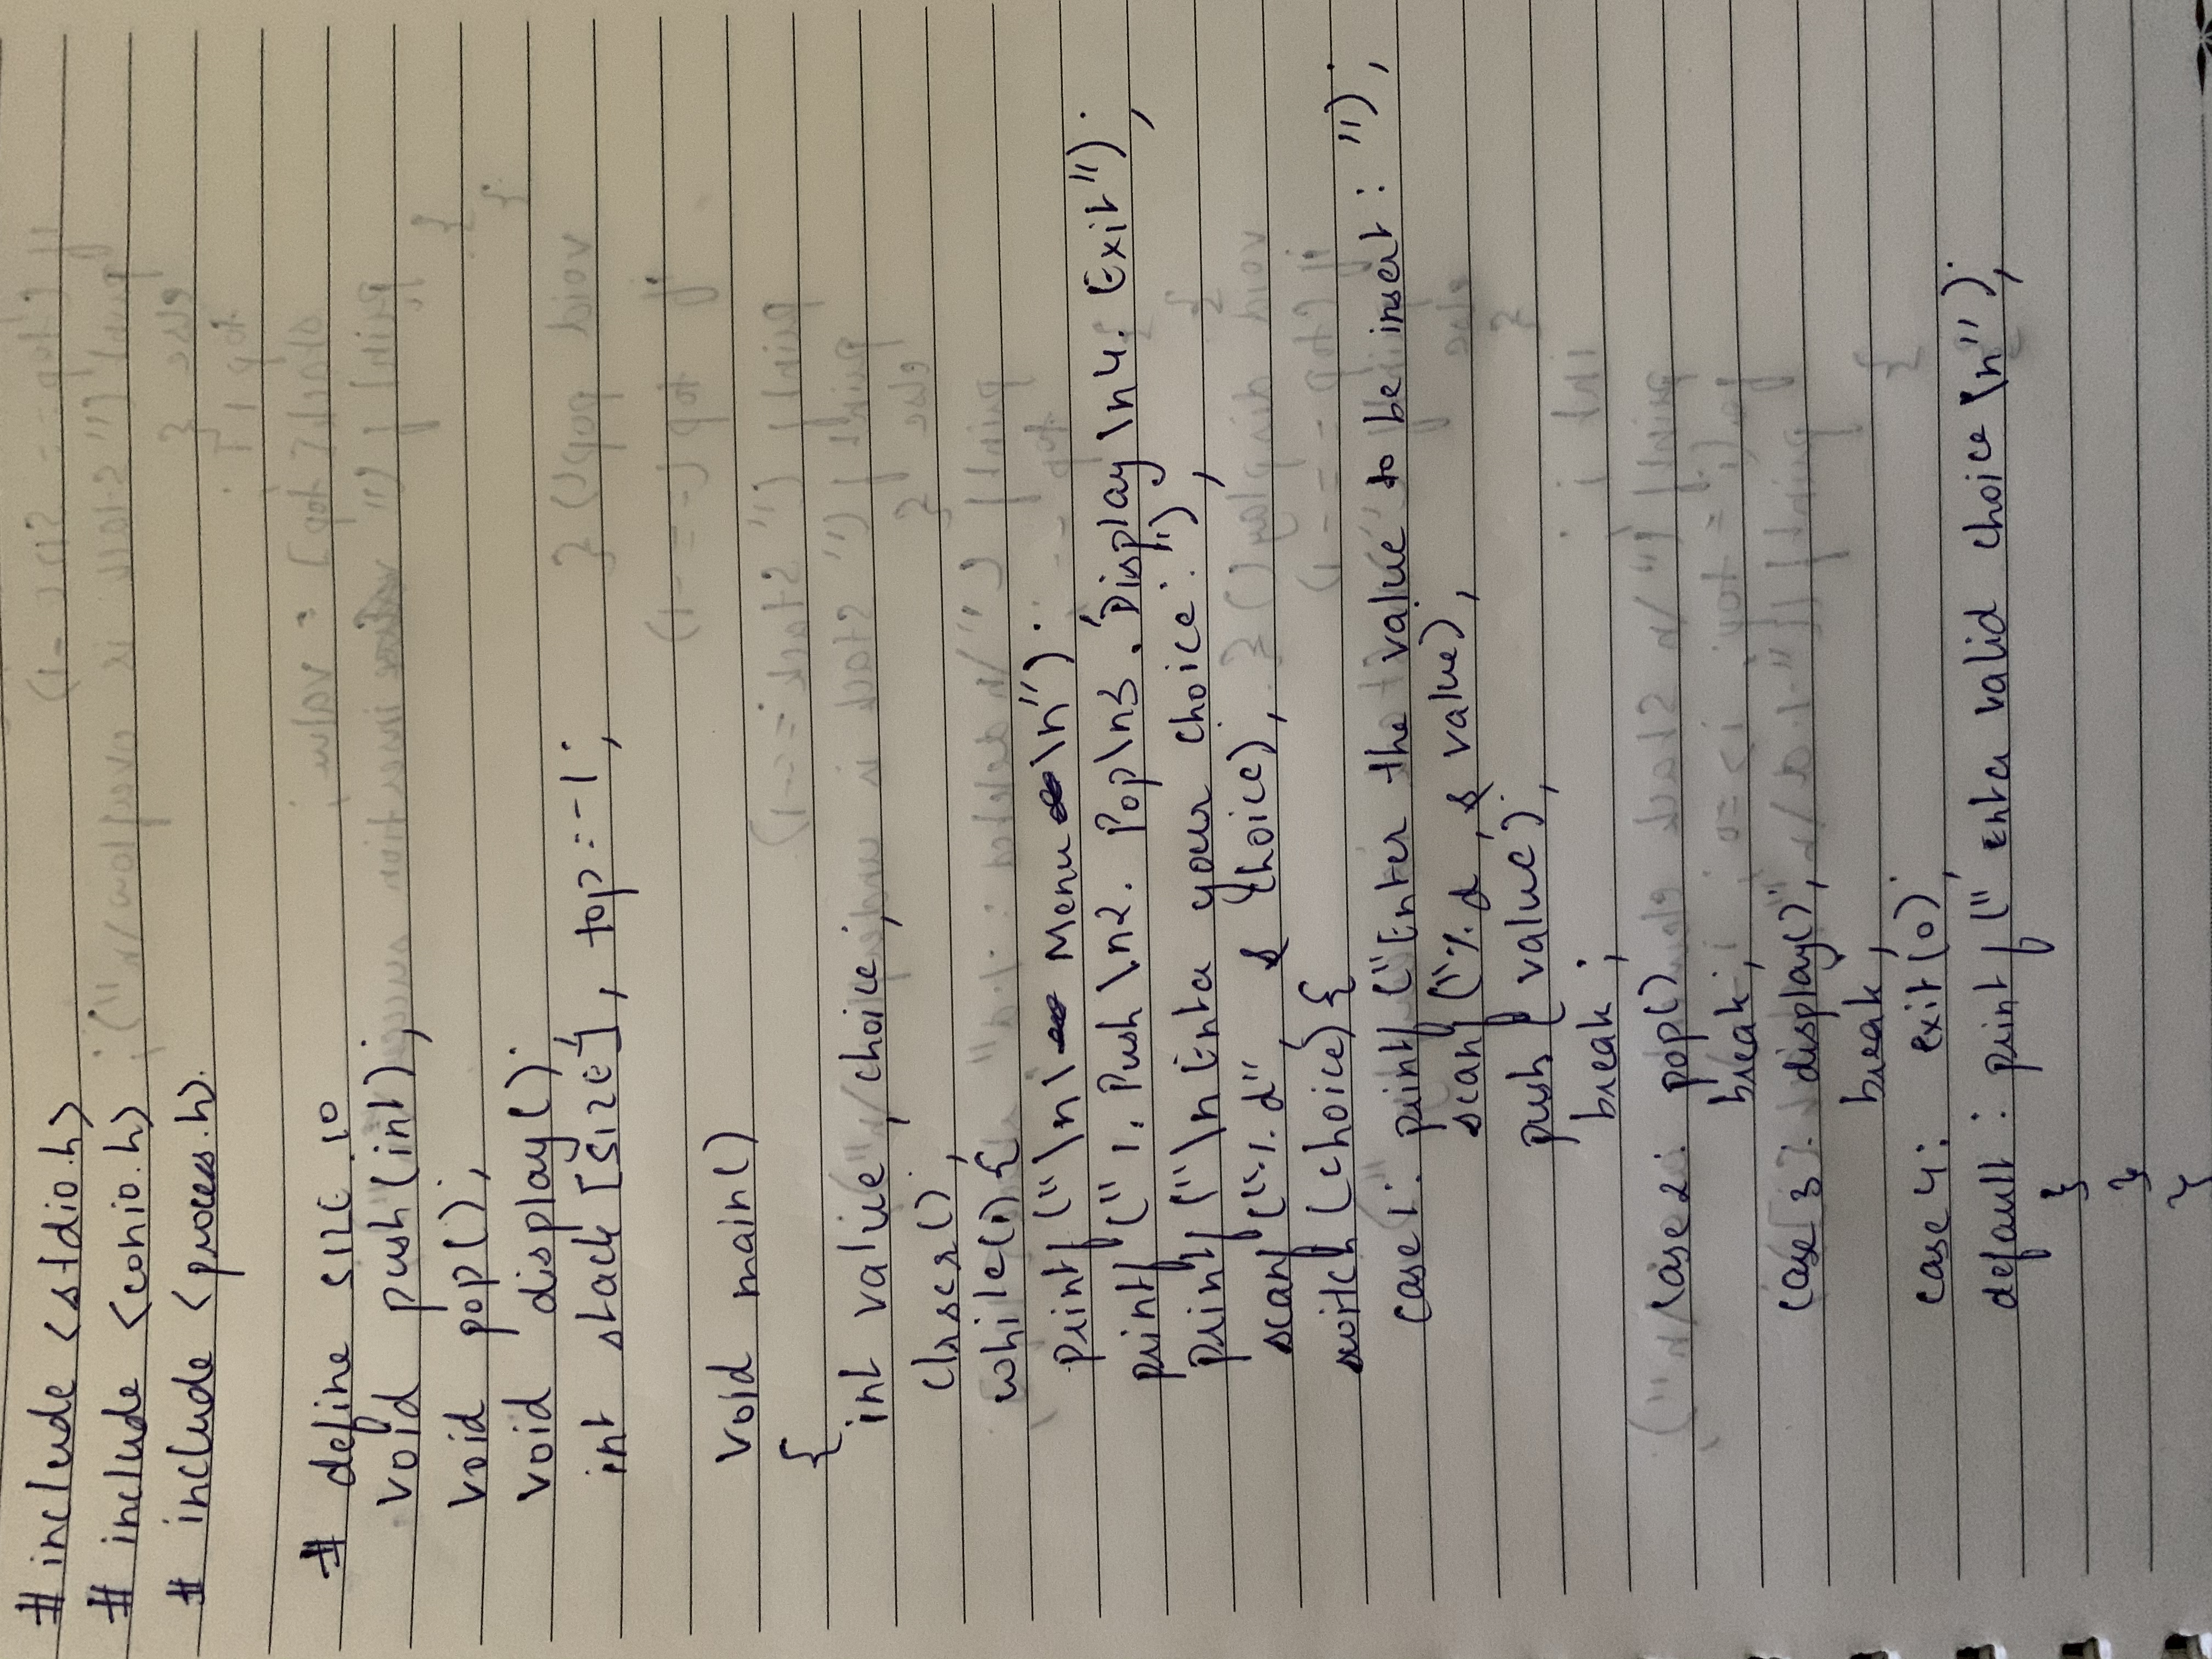 # include <stdio.h>
# include <conio.h>
# include <process.h>.
# define SIZE 10
void push(int);
void pop();
void display();
int stack [SIZE], top=-1;
void main()
{
int value, choice;
clrscr();
while(1) {
printf ("\n\ Menu \n");
printf (" 1. Push \n2. Pop\n3. Display \n4. Exit");
printf ("\n Enter your choice: ");
scanf ("%d", & choice);
switch (choice) {
case 1: printf ("Enter the value to be insert: ");
scanf ("%d , & value);
push ( value);
break ;
case 2: pop()
break;
case 3: display();
break;
case 4: exit(0);
default : printf (" enter valid choice \n");
}
}
}